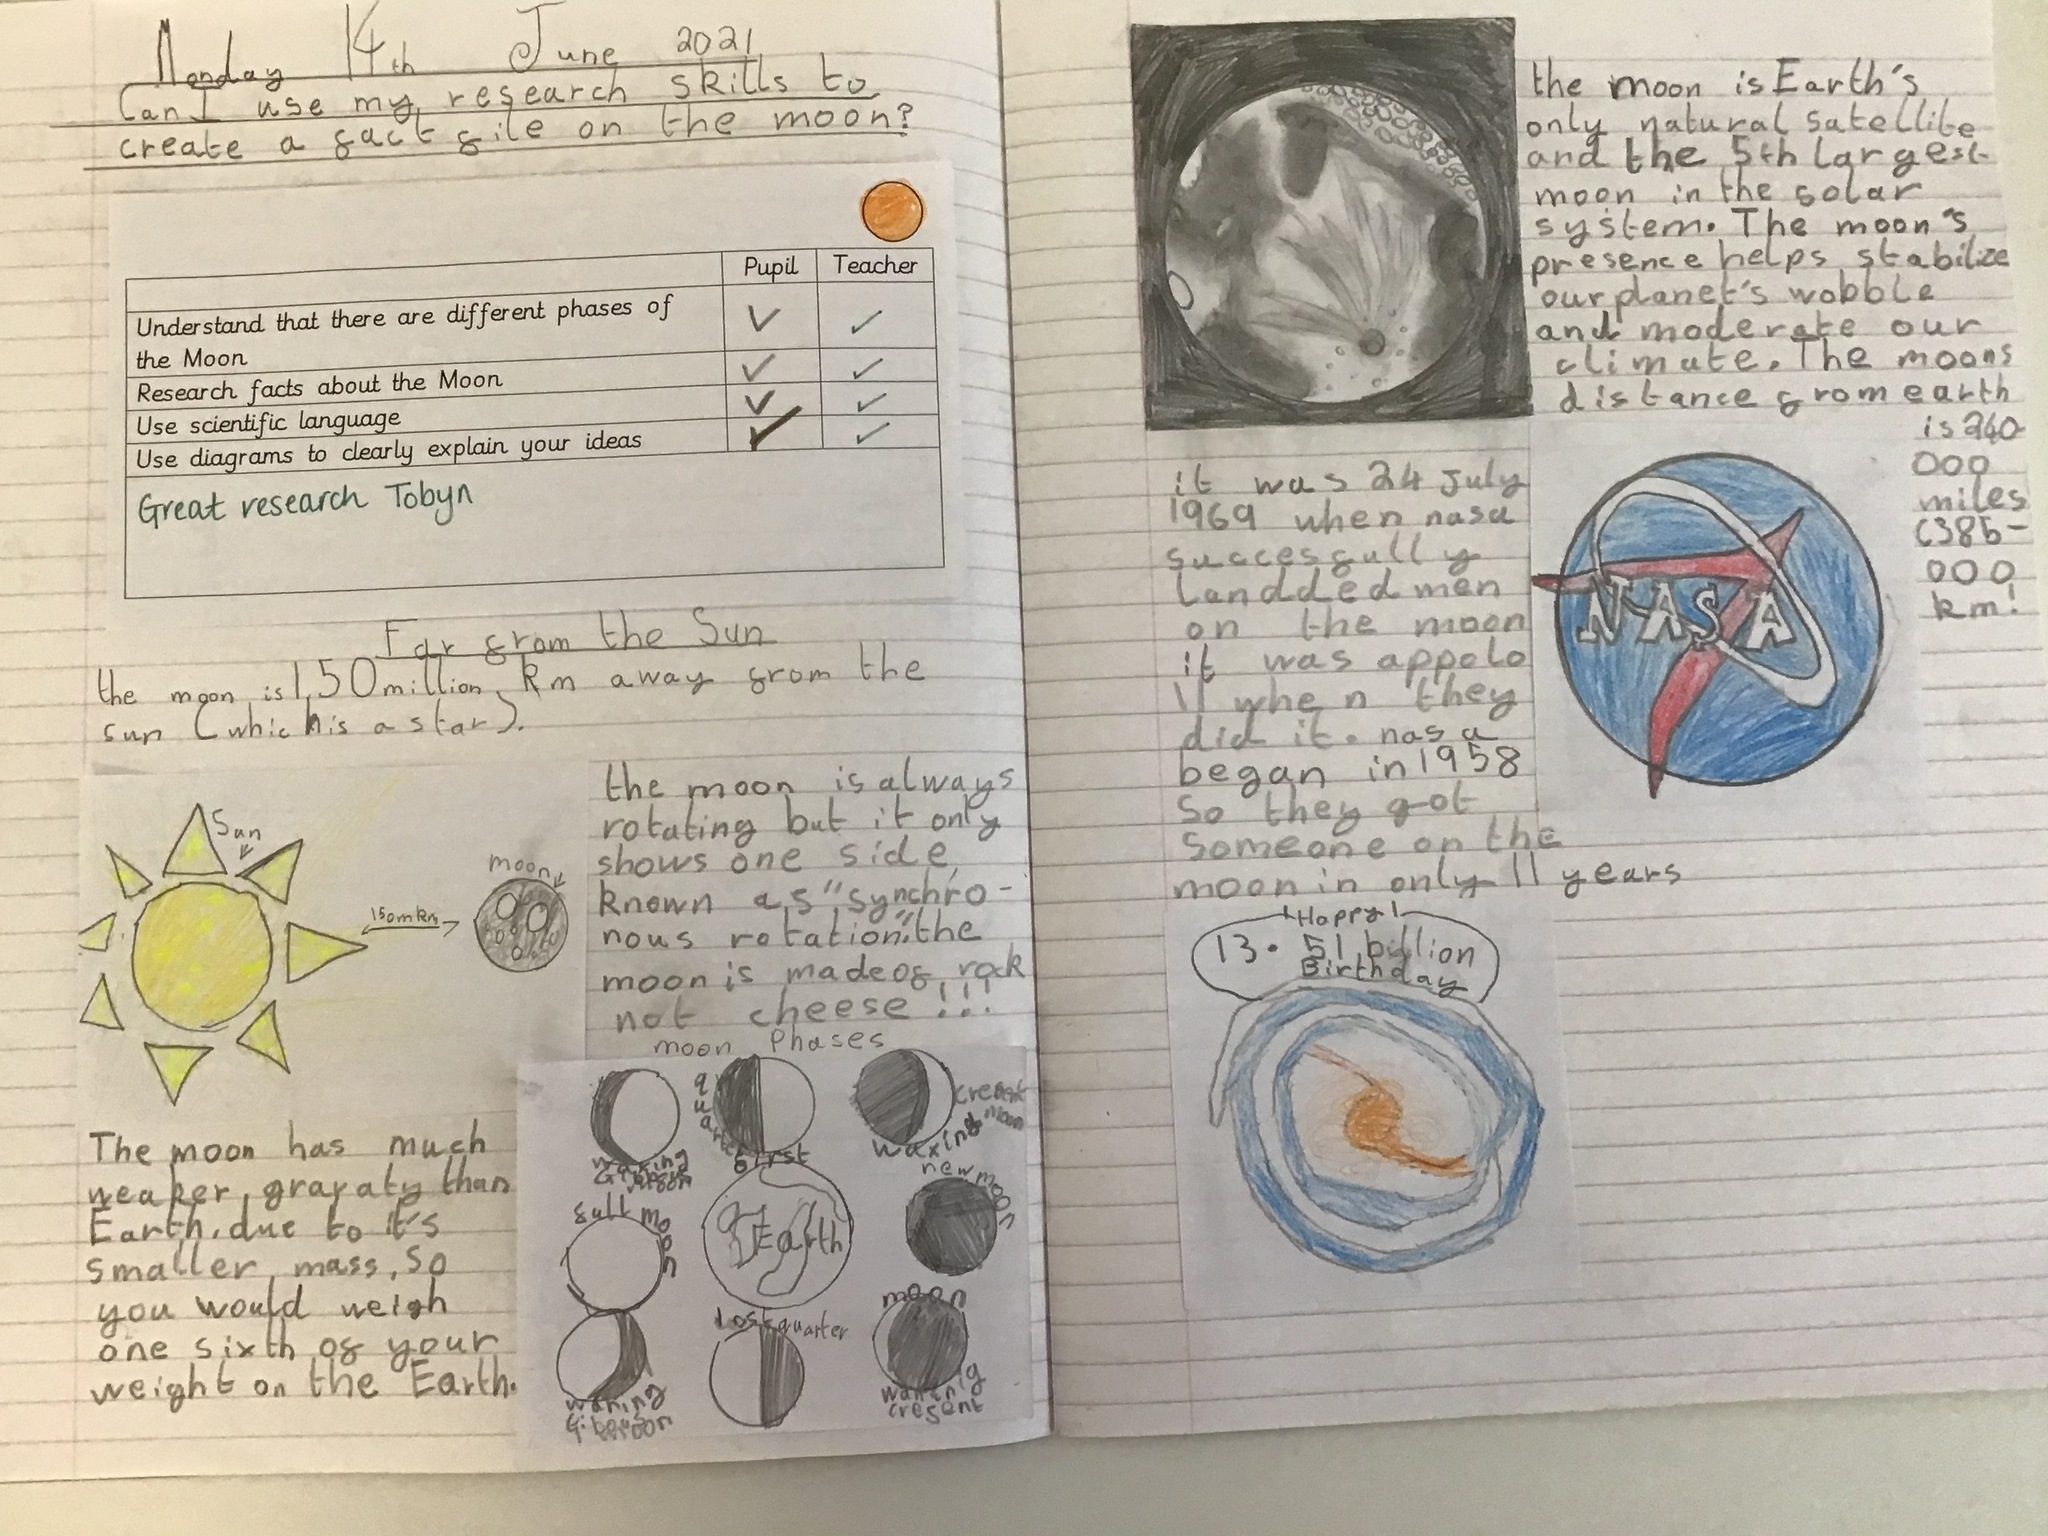 Monday 14th June 2021
Can I use my research skills to
create a fact file on the moon?
Pupil Teacher
Understand that there are different phases of
the Moon
Research facts about the Moon
Use scientific language
Use diagrams to clearly explain your ideas
Great research Tobyn
Far from the Sun
the moon is 1,50 million km away from the
sun (which is a star).
Sun
moon
150m km
the moon is always
rotating but it only
shows one side
known as "synchro-
nous rotation". the
moon is made of rock
not cheese!!!
The moon has much
weaker gravaty than
Earth, due to it's
smaller mass, so
you would weigh
one sixth of your
weight on the Earth.
moon Phases
waxing
quarter
first
cresent
moon
waxing
full moon
Earth
new moon
waning
last quarter
moon
cresent
the moon is Earth's
only natural satellite
and the 5th largest
moon in the solar
system. The moon's
presence helps stabilize
our planet's wobble
and moderate our
climate. The moons
distance from earth
is 240
000
miles
(385-
000
km!
it was 24 July
1969 when nasa
succesfully
landded men
on the moon
it was appolo
11 when they
did it. nasa
began in 1958
So they got
someone on the
moon in only 11 years
NASA
Happy!
13.51 billion
Birthday